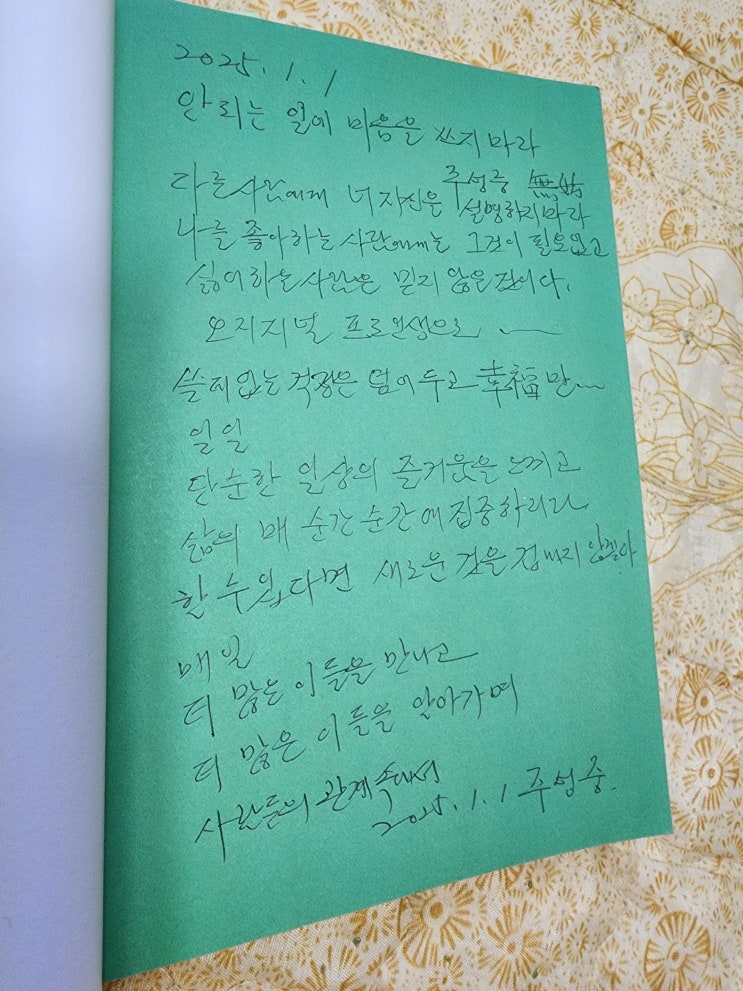 2025.1.1
안되는 일에 마음을 쓰지마라
주성중
다른사람에게 너 자신을 설명하지마라
나를 좋아하는 사람에게는 그것이 필요없고
싫어하는사람은 믿지 않을것이다.
오리지널 프로인생으로
쓸데없는 걱정은 덮어두고 幸福만...
일일
단순한 일상의 즐거움을 느끼고
삶의 매 순간순간에 집중하리라
할 수 있다면 새로운 것을 겁내지 않겠다.
매일
더 많은 이들을 만나고
더 많은 이들을 알아가며
사람들의 관계속에서
2025.1.1 주성중.